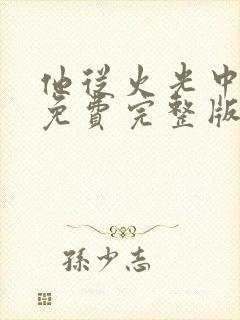 他從火光中
免費完整版
孫少志